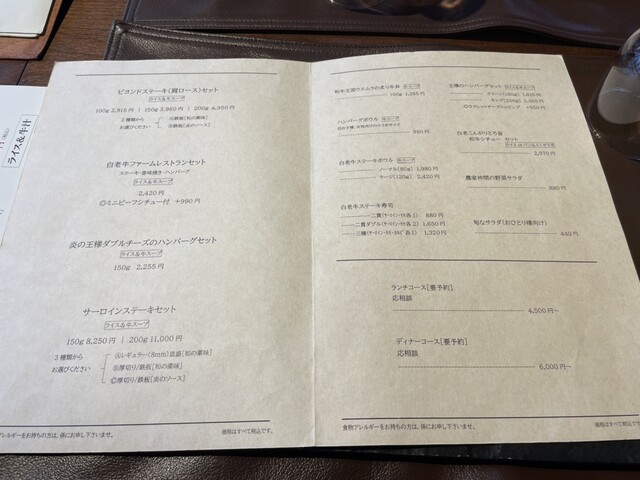 ライス&牛汁
ビヨンドステーキ(肩ロース)セット
ライス&牛スープ
100g 2,915円 | 150g 3,960円 | 200g 4,950円
2種類から
お選びください
Ⓐ鉄板[和の薬味]
Ⓑ鉄板[炎のソース]
白老牛ファームレストランセット
ステーキ・薬味焼き・ハンバーグ
ライス&牛スープ
2,420円
◎ミニビーフシチュー付 +990円
炎の王様ダブルチーズのハンバーグセット
ライス&牛スープ
150g 2,255円
サーロインステーキセット
ライス&牛スープ
150g 8,250円 | 200g 11,000円
3種類から
お選びください
Ⓐレギュラー(8mm)皿盛[和の薬味]
Ⓑ厚切り/鉄板[和の薬味]
Ⓒ厚切り/鉄板[炎のソース]
食物アレルギーをお持ちの方は、係にお申し下さいませ。
価格はすべて税込です。
和牛王国ウエムラの炙り牛丼 牛スープ
100g
ハンバーグボウル 牛スープ
990円
白老牛ステーキボウル 牛スープ
ノーマル(80g) 1,980円
ラージ(120g) 2,420円
白老牛ステーキ寿司
二貫 880円
二貫ダブル 1,650円
三種 1,320円
王様のハンバーグセット
白老こんがりとろ旨
和牛シチュー セット
2,970円
農家仲間の野菜サラダ
880円
旬なサラダ(おひとり様向け)
440円
ランチコース[要予約]
応相談
4,500円~
ディナーコース[要予約]
応相談
6,000円~
食物アレルギーをお持ちの方は、係にお申し下さいませ。
価格はすべて税込です。